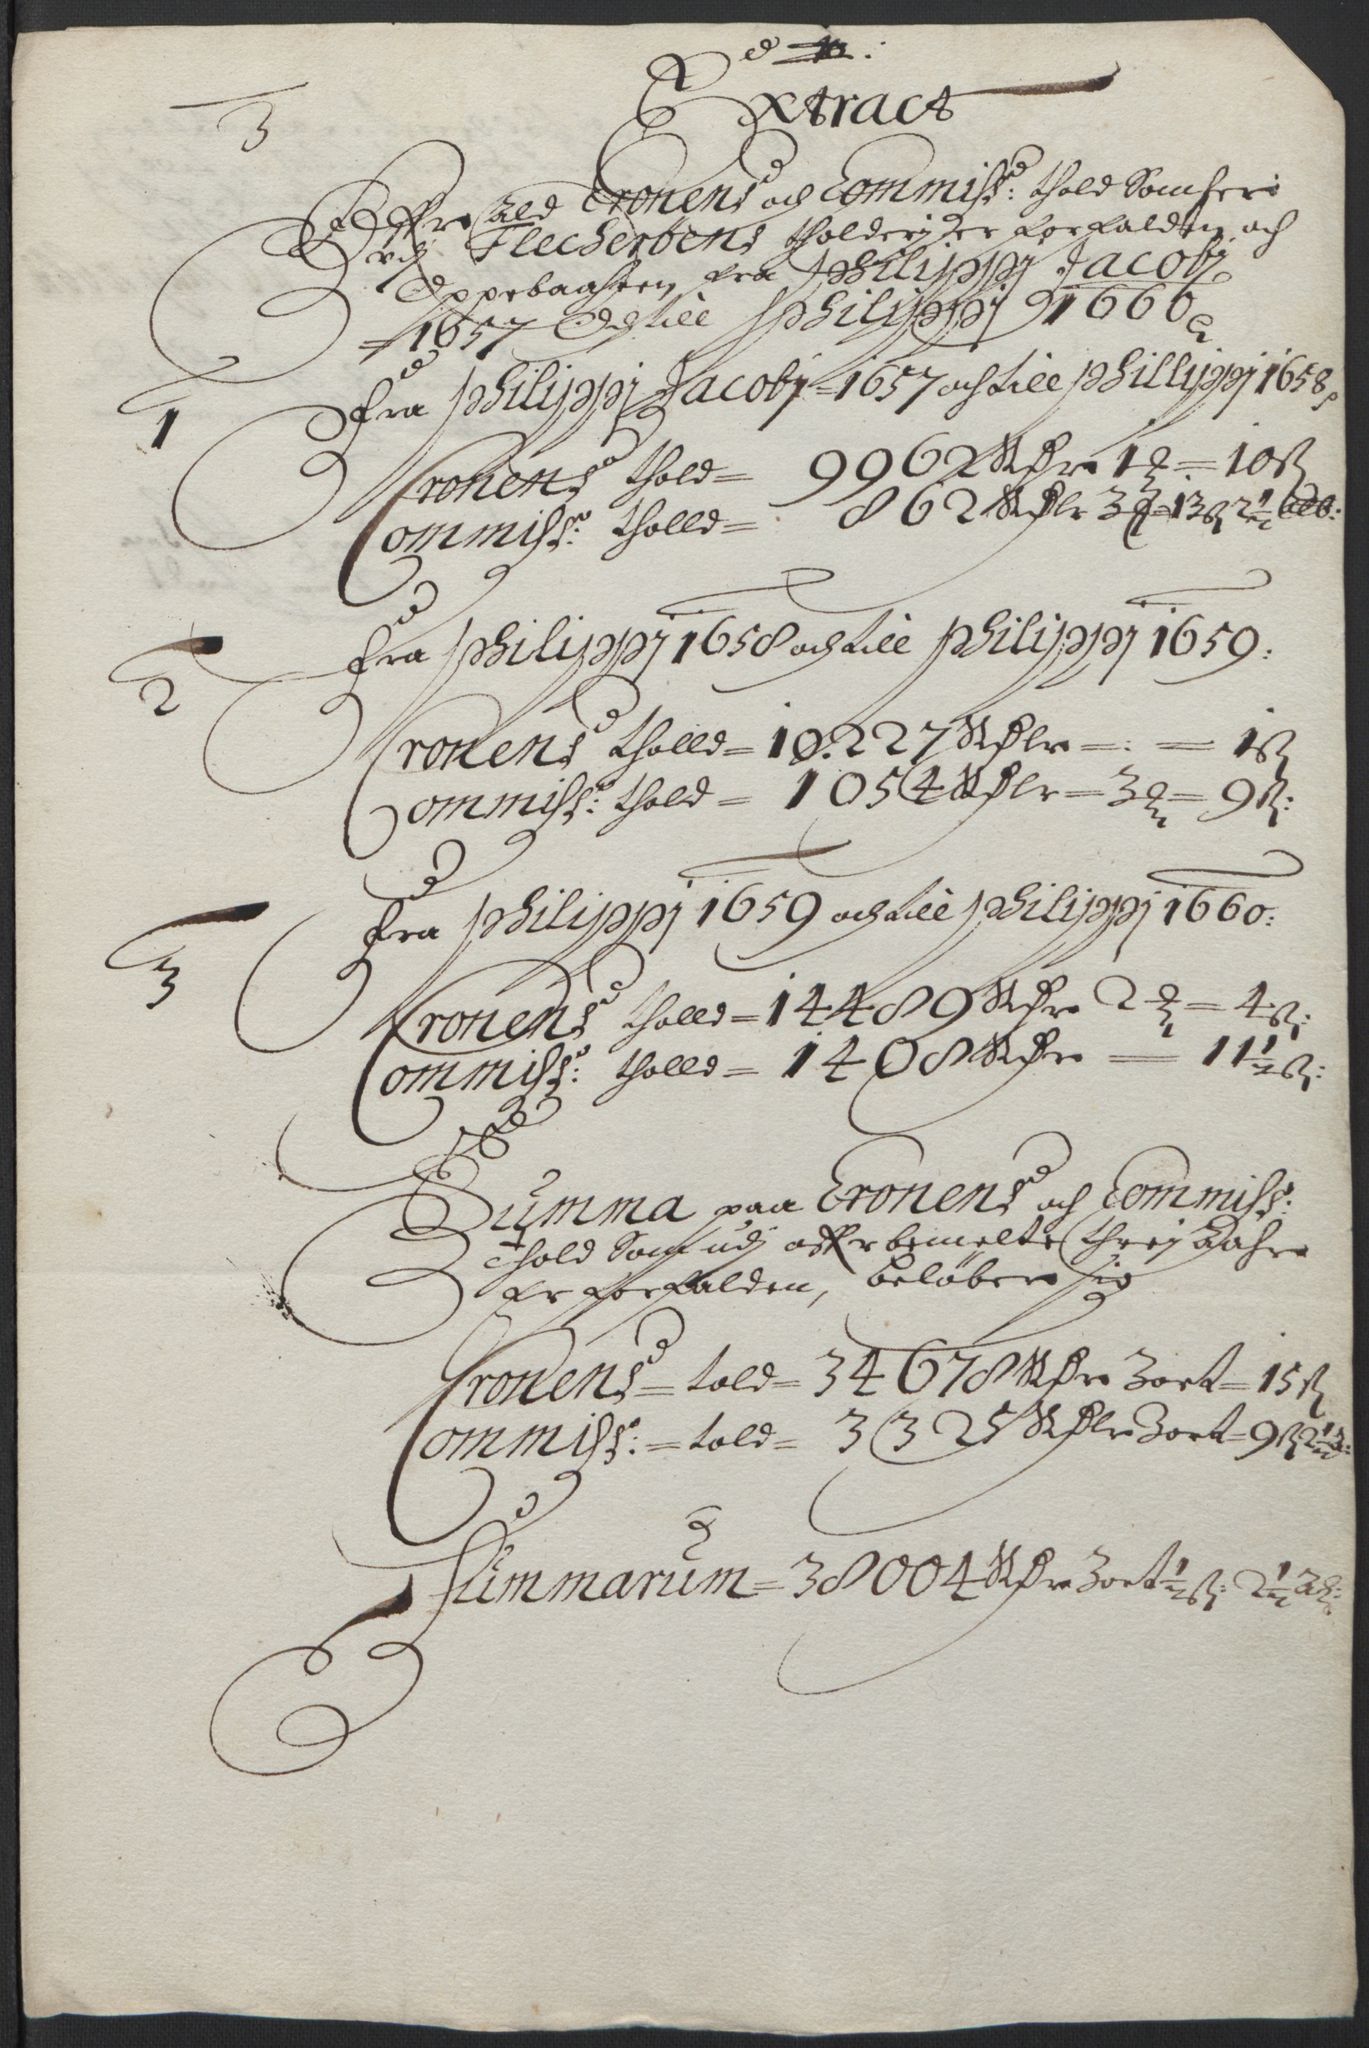 3
Extract
Offr ald Cronens och Commiss: thold Som heri
vdj Fleckerøens tholderij er forfalden, och
Oppebaaren fra Philippj Jacobj
1657 Och till Philippj 1660
1
Fra Philippj Jacobj = 1657 och till Phillippj 1658
Cronens thold = 9962 Rdr 1 = 10 ß
Commiss: tholld = 862 Rdlr 3 = 13 ß 2 1/2 alb:
2
Fra Philippj 1658 och till Philippj 1659:
Cronens tholld = 10.227 Rdlr = : = 1 ß
Commiss: thold = 1054 Rdlr = 3 = 9 ß:
3
Fra Philippj 1659 och till Philippj 1660:
Cronens tholld = 14489 Rdr 2 = 4 ß:
Commiss: tholld = 1408 Rdr = 11 1/2 ß:
Summa paa Cronens och Commiss:
thold Som udj offrbemelte threj Aahr
er forfalden, beløber sig
Cronens = told = 34678 Rdr 3 ort = 15 ß
Commiss: = told = 3325 Rdlr 3 ort = 9 ß 2 1/2
Summarum = 38004 Rdr 3 ort 1/2 ß: 2 1/2